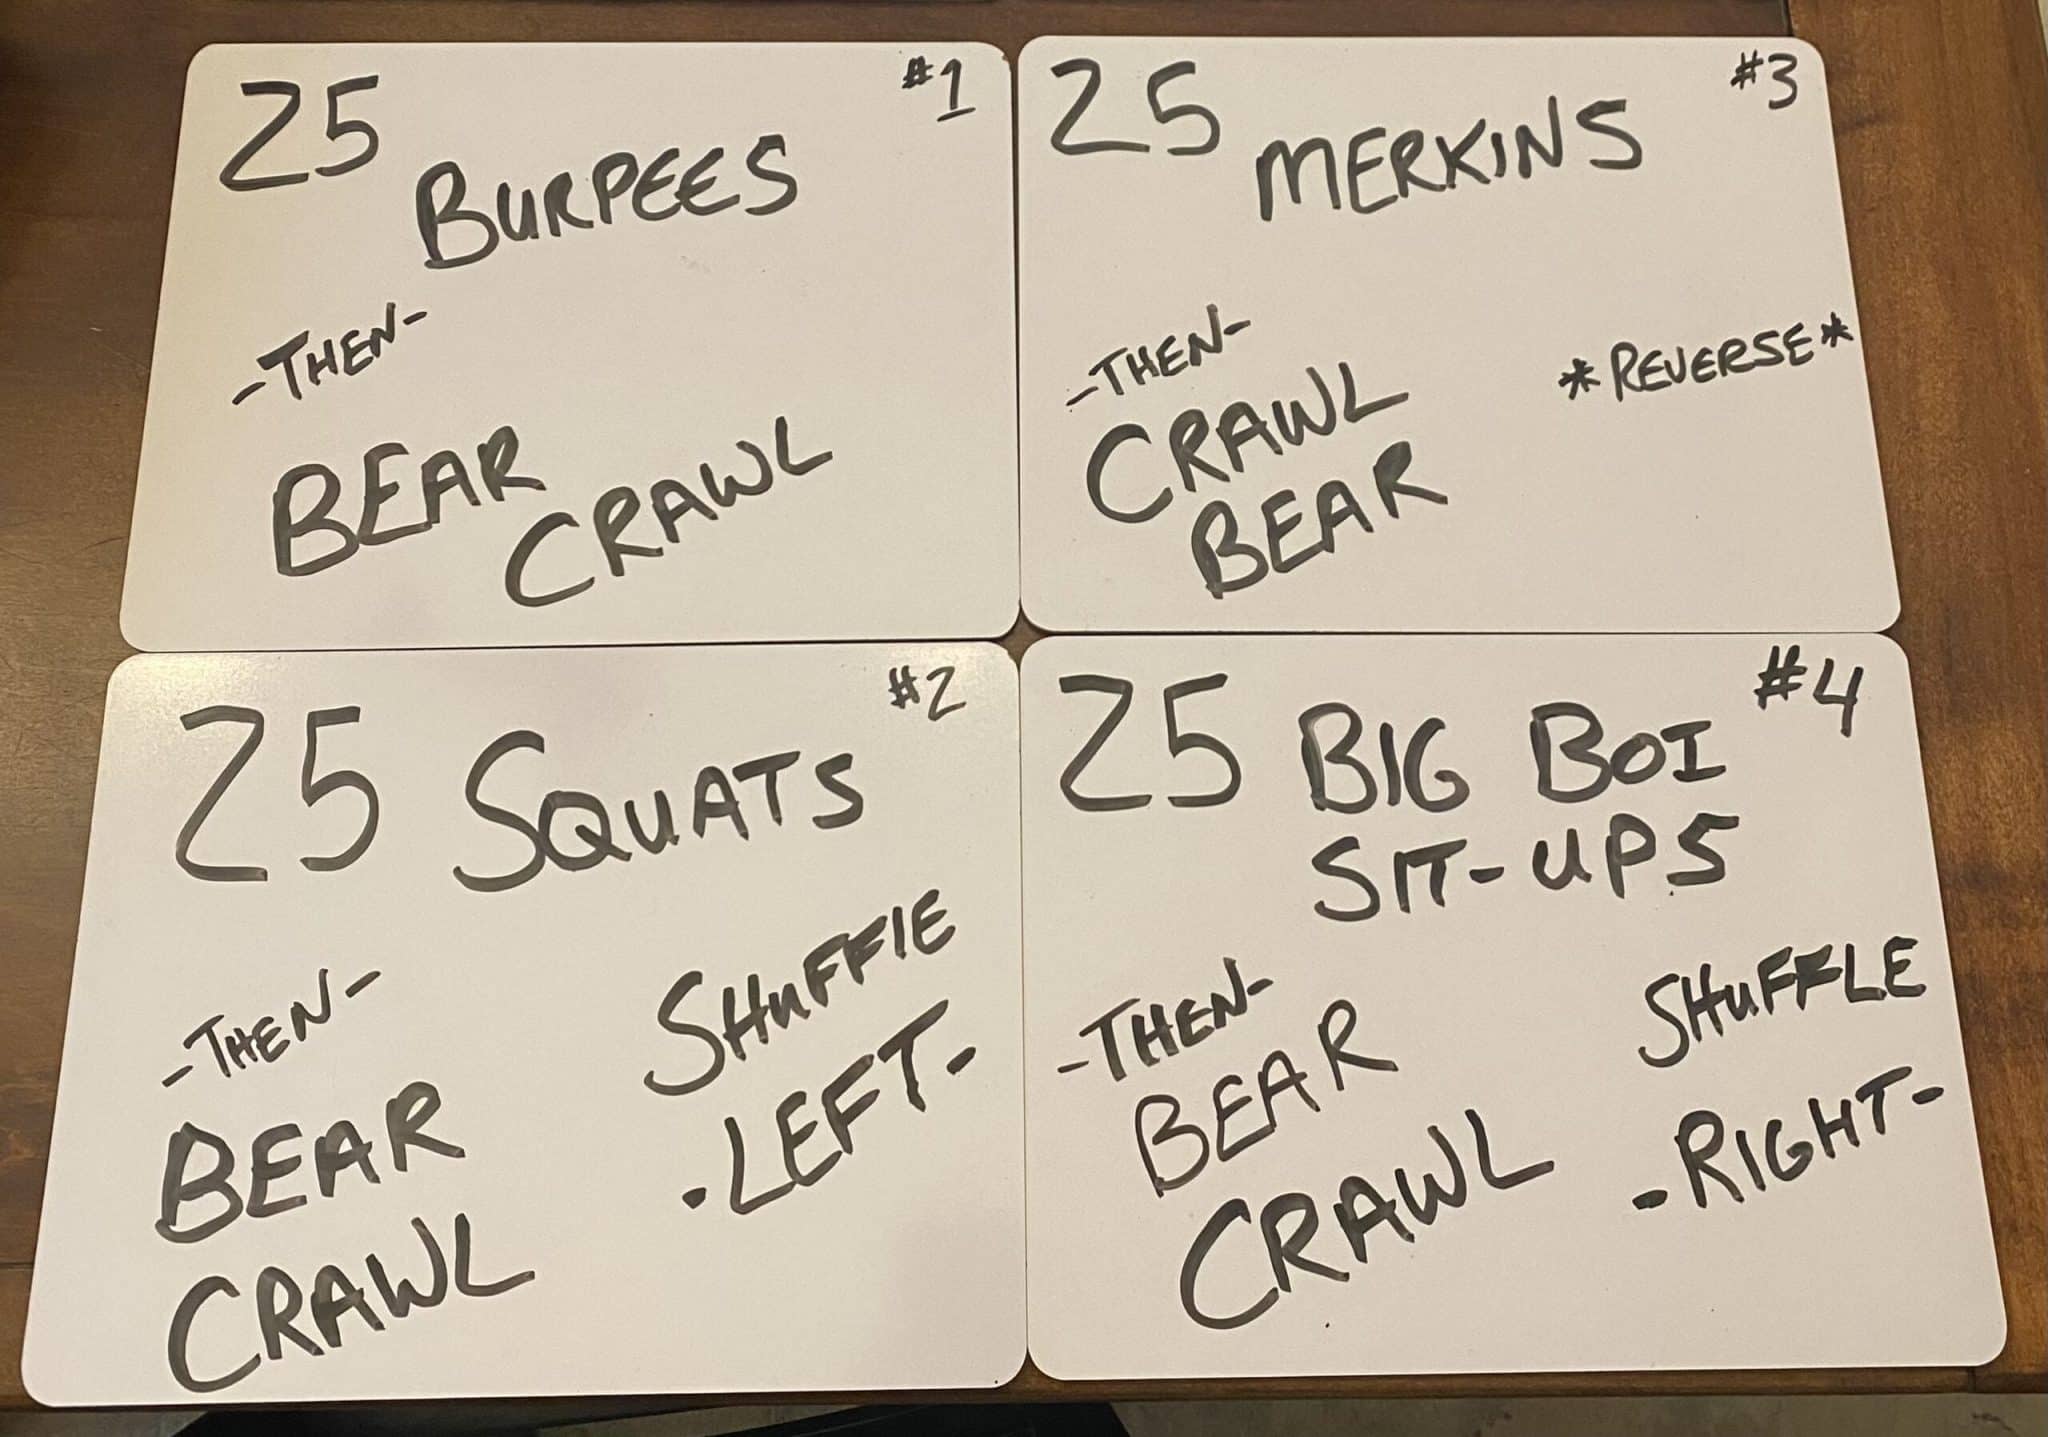 #1
25 BURPEES
-THEN-
BEAR
CRAWL
#2
25 SQUATS
-THEN-
BEAR
CRAWL
SHUFFLE
-LEFT-
#3
25 MERKINS
-THEN-
CRAWL
BEAR
*REVERSE*
#4
25 BIG BOI
SIT-UPS
-THEN-
BEAR
CRAWL
SHUFFLE
-RIGHT-